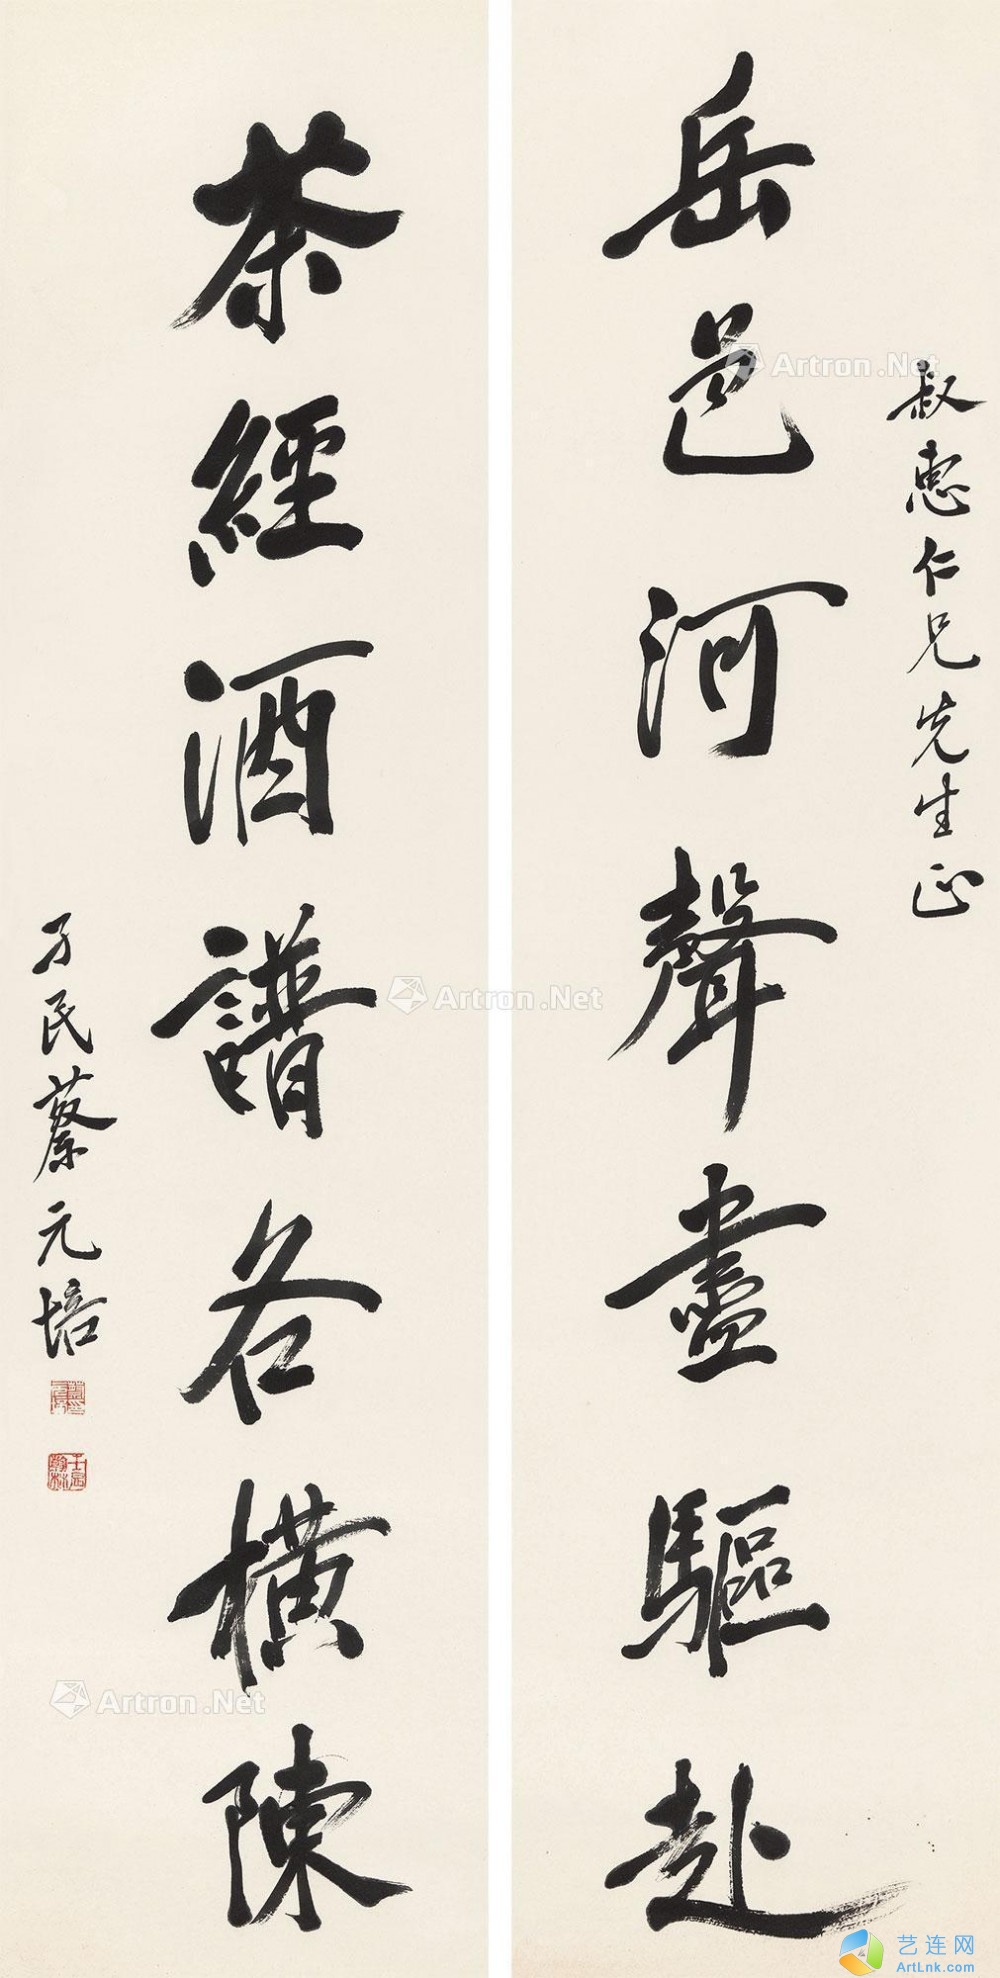 叔惠仁兄先生正
岳色河聲盡驅赴
茶經酒譜各橫陳
孑民蔡元培
壬辰翰林
Artron.Net
Artron.Net
Artron.Net
艺连网
ArtLnk.com